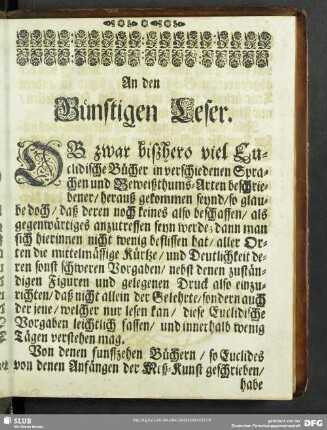 An den
Günstigen Leser.
OB zwar bißhero viel Eu-
clidische Bücher in verschiedenen Spra-
chen und Beweißthums-Arten beschrie-
bener/ herauß gekommen seynd/ so glau-
be doch/ daß deren noch keines also beschaffen/ als
gegenwärtiges anzutreffen seyn werde; dann man
sich hierinnen nicht wenig beflissen hat/ aller Or-
ten die mittelmässige Kürtze/ und Deutlichkeit de-
ren sonst schweren Vorgaben/ nebst denen zustän-
digen Figuren und gelegenen Druck also einzu-
richten/ daß nicht allein der Gelehrte/ sondern auch
der jene/ welcher nur lesen kan/ diese Euclidische
Vorgaben leichtlich fassen/ und innerhalb wenig
Tägen verstehen mag.
Von denen funffzehen Büchern/ so Euclides
von denen Anfängen der Meß-Kunst geschrieben/
habe
SLUB
Wir führen Wissen.
gefördert von der
Deutschen Forschungsgemeinschaft
DFG